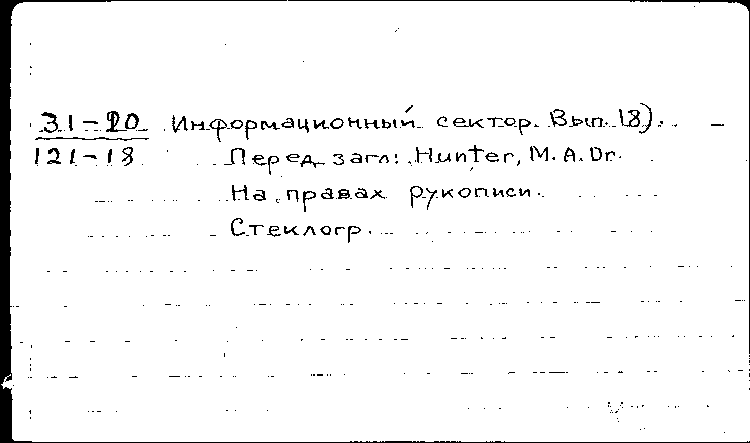 31-20 Информационный сектор. Вып. 18).
121-18 Перед загл: Hunter, M. A. Dr.
На правах рукописи.
Стеклогр.